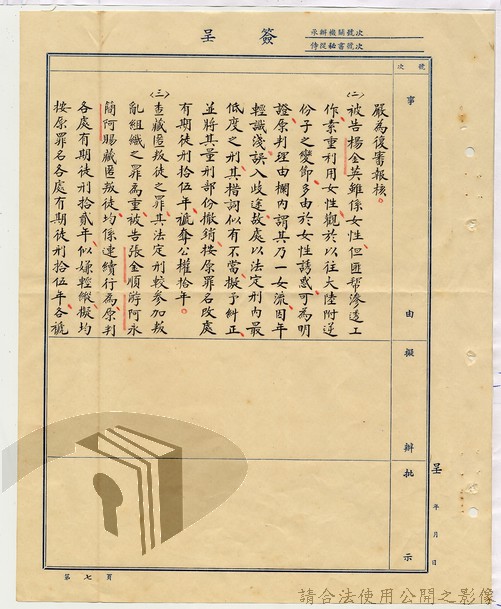 簽呈
承辦機關號次
侍從祕書號次
號次
事由
擬辦
批示
嚴為復審報核。
(二)被告楊金英雖係女性,但匪幫滲透工
作,素重利用女性,觀於以往大陸附逆
份子之變節,多由於女性誘惑,可為明
證,原判理由欄內謂其乃一女流,因年
輕識淺,誤入歧途,故處以法定刑內最
低度之刑,其措詞似有不當,擬予糾正,
並將其量刑部份撤銷,按原罪名改處
有期徒刑拾伍年,褫奪公權拾年。
(三)查藏匿叛徒之罪,其法定刑較參加叛
亂組織之罪為重,被告張金順、游阿永、
簡阿賜藏匿叛徒,均係連續行為,原判
各處有期徒刑拾貳年,似嫌輕縱,擬均
按原罪名各處有期徒刑拾伍年,各褫
呈 年 月 日
第七頁
請合法使用公開之影像